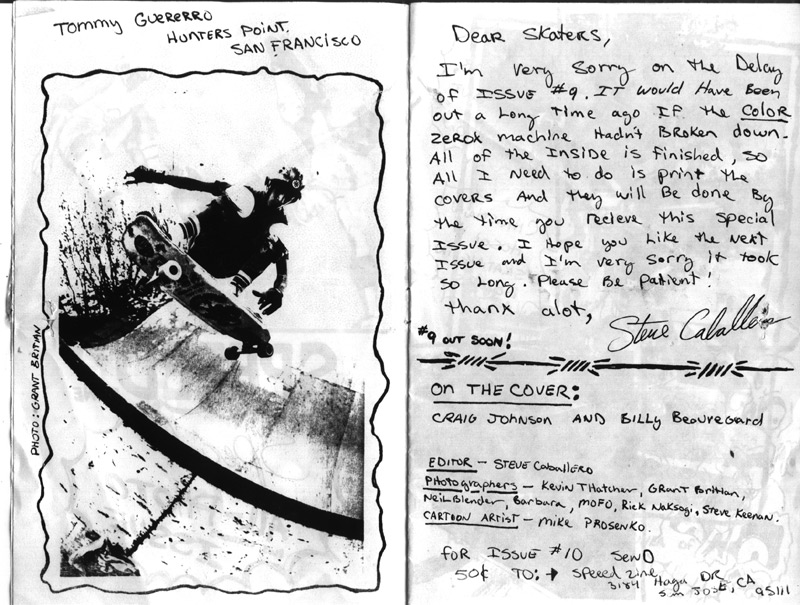 Tommy Guererro
Hunters Point.
San Francisco
Photo: Grant Brittian
Dear Skaters,
I'm very sorry on the Delay
of Issue #9. It would Have Been
out a Long Time ago If the Color
Zerox machine Hadn't Broken down.
All of the Inside is Finished, so
All I Need to do is print the
covers And they will Be done By
the time you recieve this special
Issue. I Hope you Like the Next
Issue and I'm very sorry it took
so Long. Please Be Patient!
thanx alot,
Steve Caballero
#9 out soon!
On The Cover:
Craig Johnson and Billy Beauregard
Editor - Steve Caballero
Photographers - Kevin Thatcher, Grant Brittian,
Neil Blender, Barbara, Mofo, Rick Naksogi, Steve Keenan.
Cartoon Artist - Mike Prosenko.
For Issue #10 Send
50¢ To: → Speed Zine
Haga DR
San Jose, CA
95111